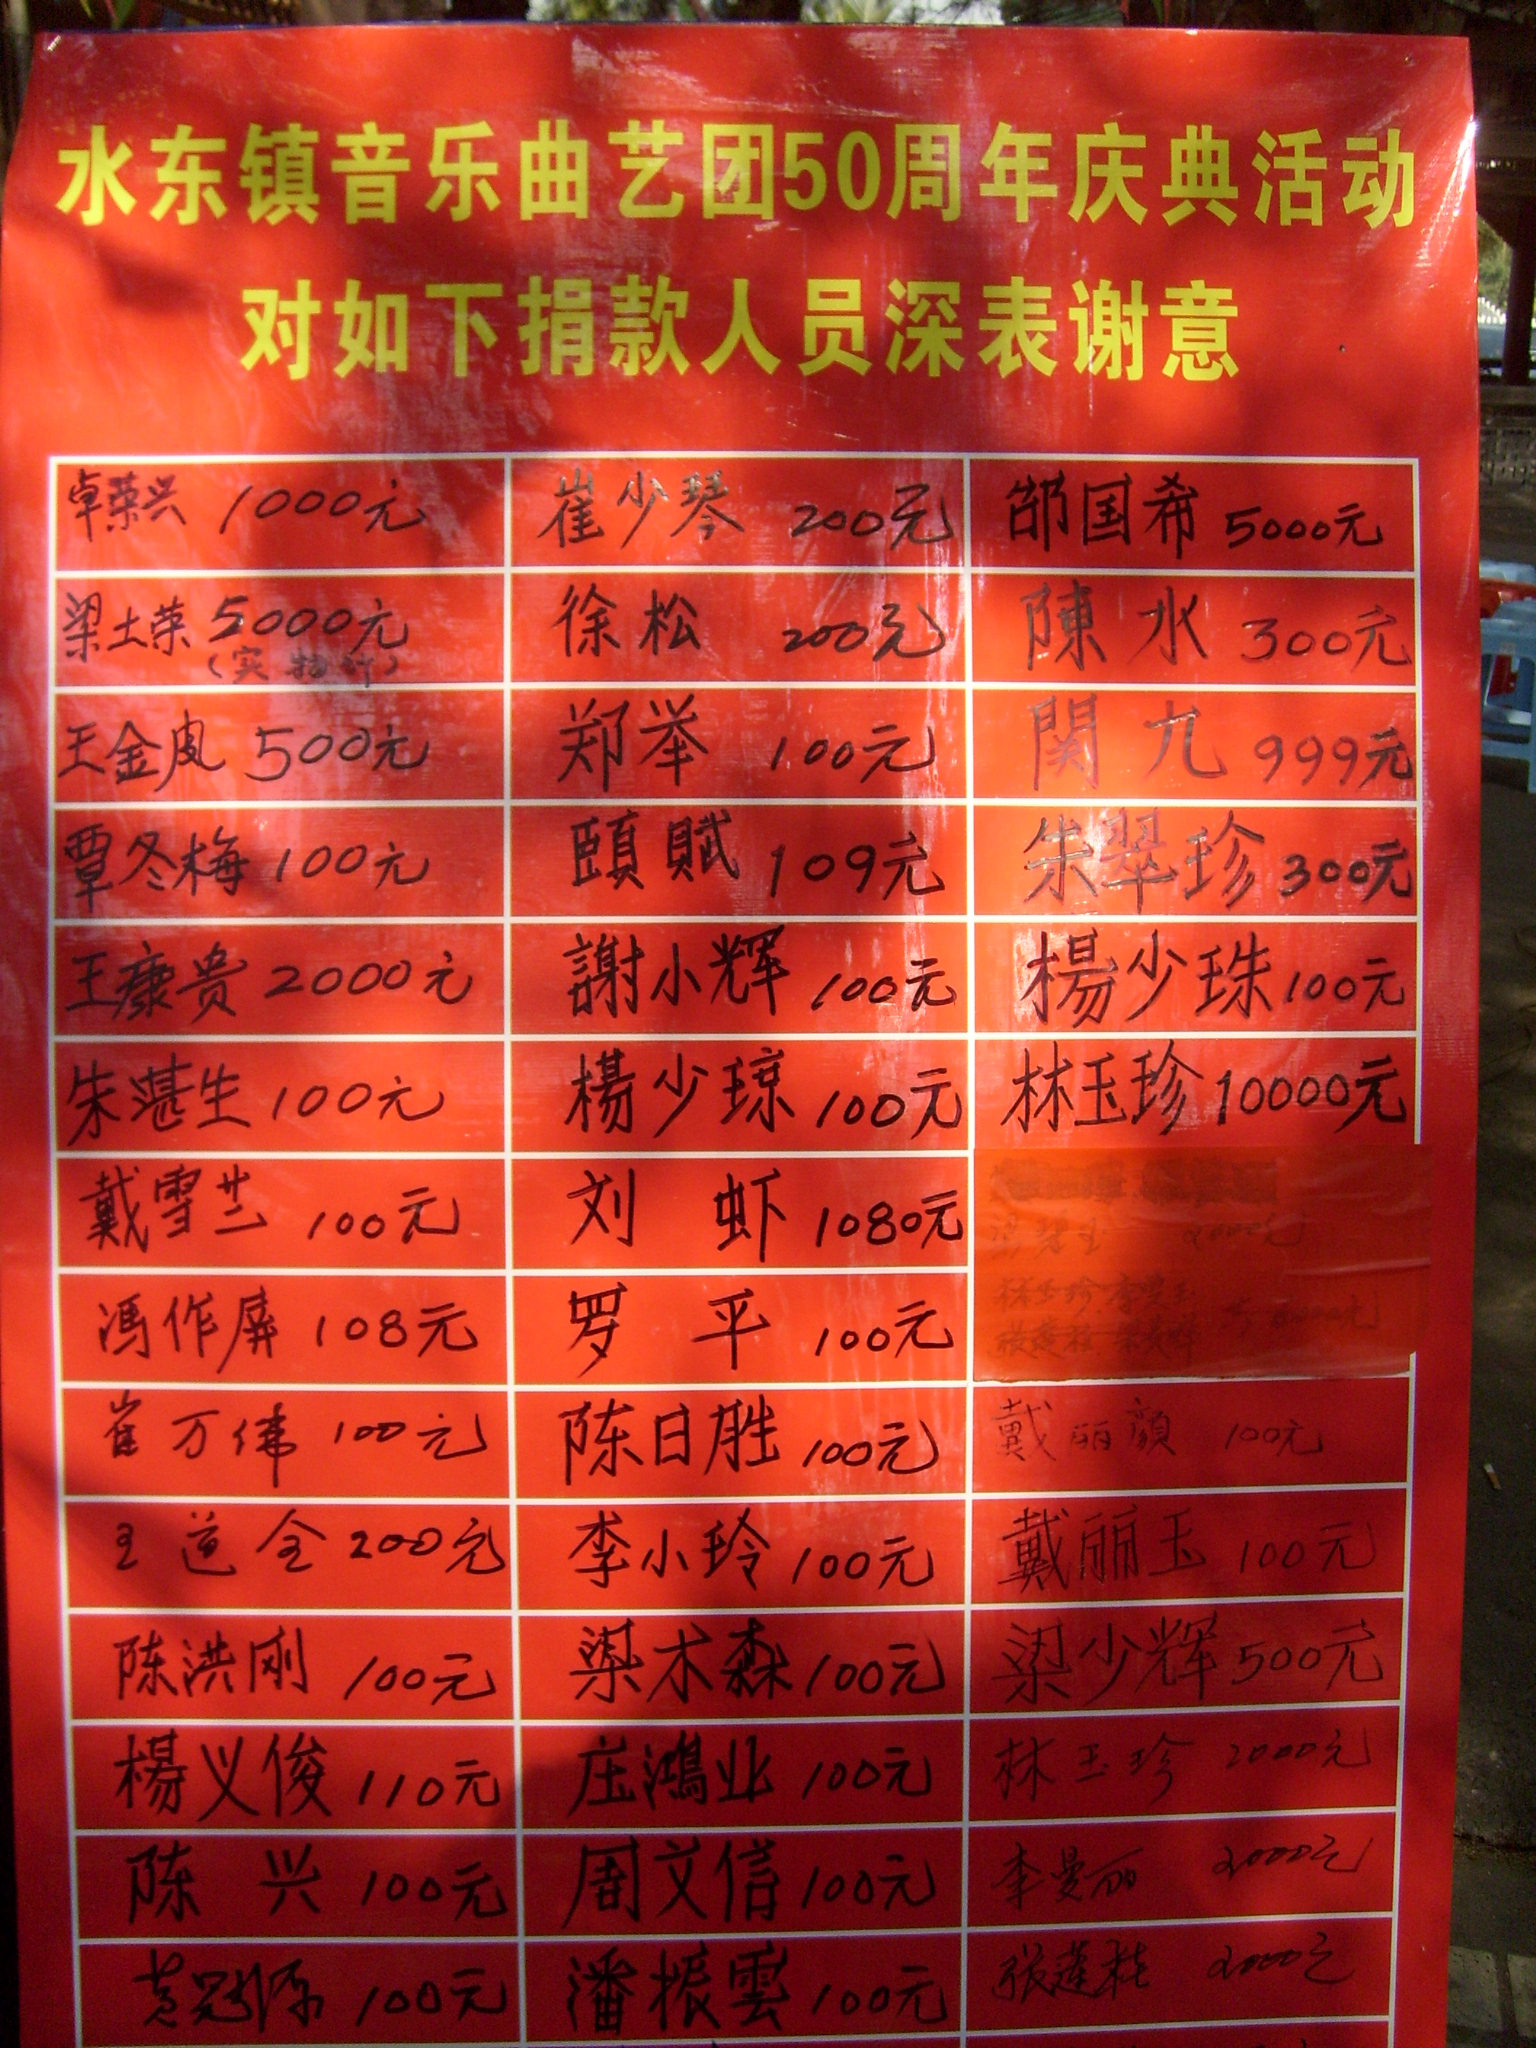 水东镇音乐曲艺团50周年庆典活动
对如下捐款人员深表谢意
卓荣兴 1000元 崔少琴 200元 邵国希 5000元
梁土荣 5000元 徐松 200元 陳水 300元
(实物计)
王金皮 500元 郑举 100元 関九 999元
覃冬梅 100元 頤賦 109元 朱翠珍 300元
王康贵 2000元 謝小辉 100元 楊少珠 100元
朱湛生 100元 楊少琼 100元 林玉珍 10000元
戴雪兰 100元 刘虾 1080元
冯作屏 108元 罗平 100元
崔万伟 100元 陈日胜 100元 戴丽颜 100元
王道全 200元 李小玲 100元 戴丽玉 100元
陈洪刚 100元 梁木森 100元 梁少辉 500元
楊义俊 110元 庄鴻业 100元 林玉珍 2000元
陈兴 100元 周文信 100元 李曼丽 2000元
黄冠源 100元 潘振雲 100元 張莲桂 2000元